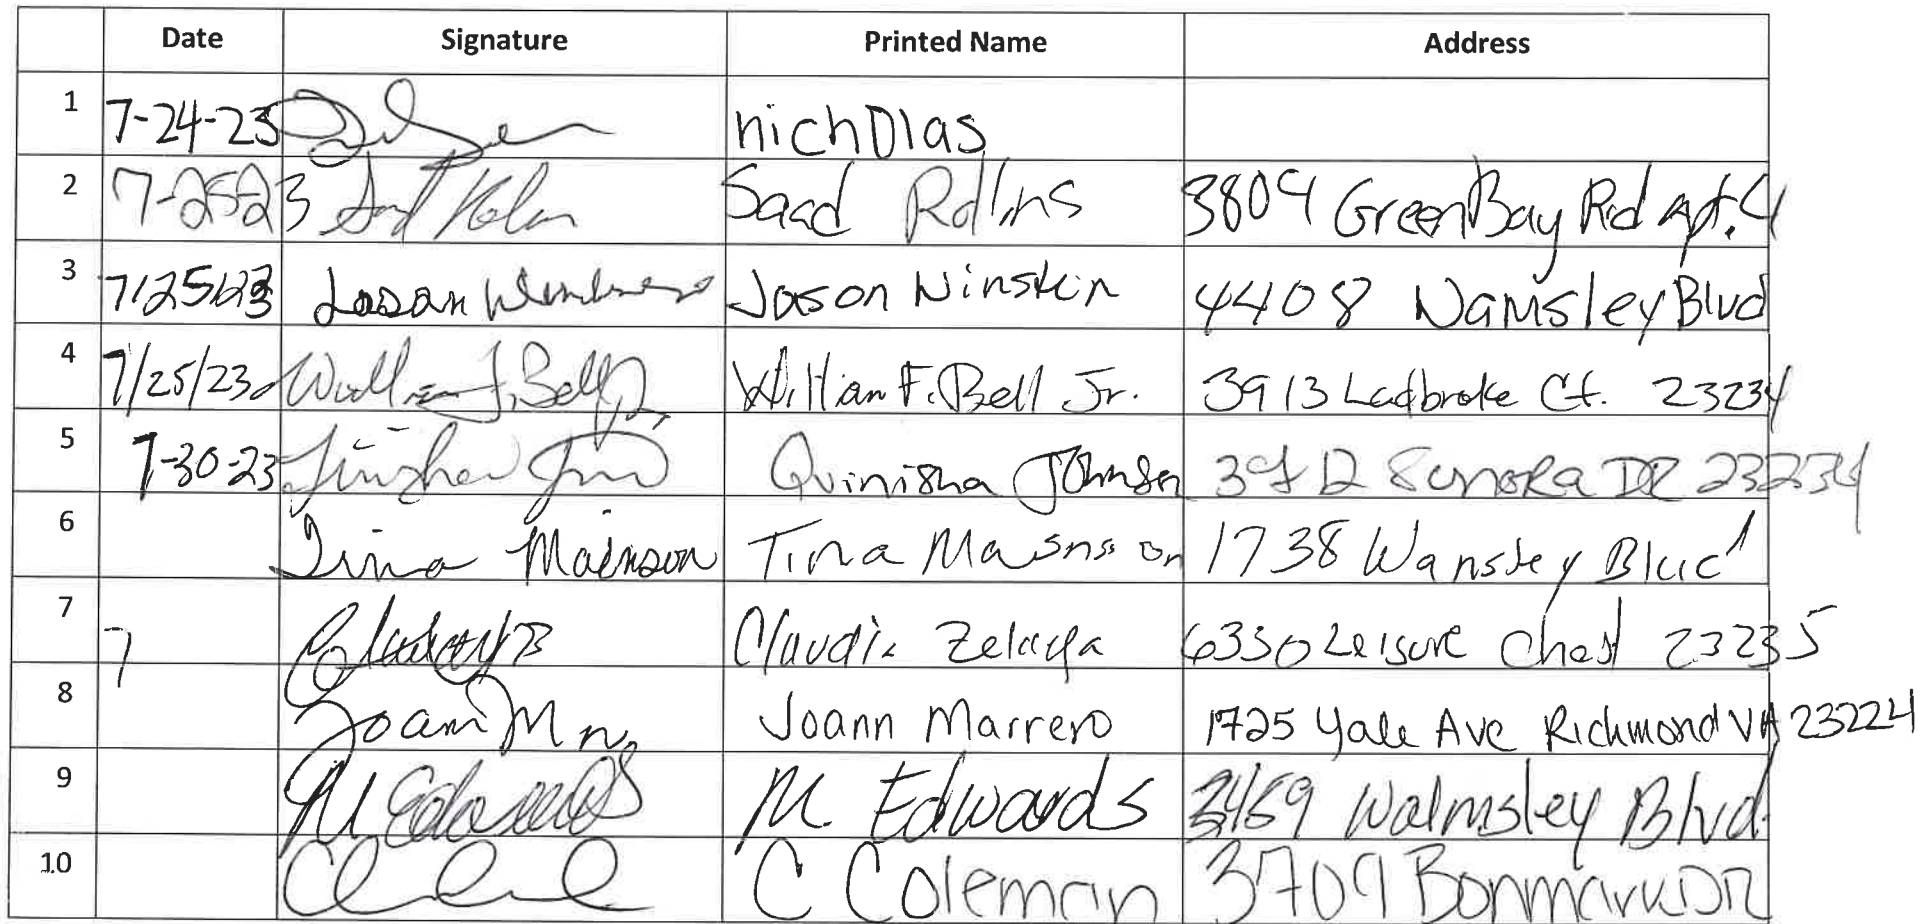 Date Signature Printed Name Address
1 7-24-23 nichOlas
2 7-25-23 Saad Rollins 3804 GreenBay Rd Apt. 4
3 7/25/23 Jason Winston 4408 Wamsley Blvd
4 7/25/23 William F. Bell Jr. William F. Bell Jr. 3913 Ladbroke Ct. 23234
5 7-30-23 Quinisha Johnson 3912 Sonora DR 23234
6 Tina Mainson Tina 1738 Wansley Blvd
7 7 Claudia Zelaya 6330 Leisure 23235
8 Joann Marrero 1725 Yale Ave Richmond VA 23224
9 M Edwards M. Edwards Walmsley Blvd.
10 C Coleman 3709 Bonmark DR